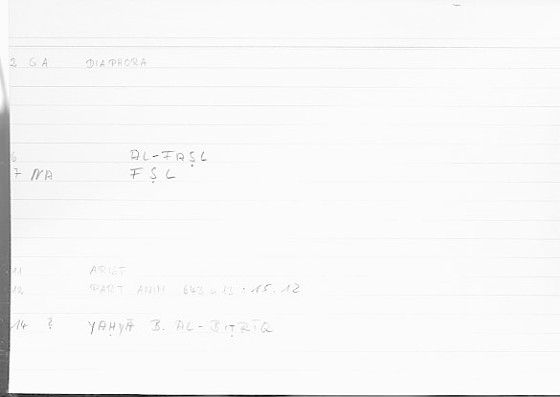 2 GA DIAPHORA
6 AL-FAṢL
7 NA FṢL
11 ARIST
12 PART. ANIM. 643 a 13 · 15. 12
14 ? YAḤYĀ B. AL-BIṬRĪQ